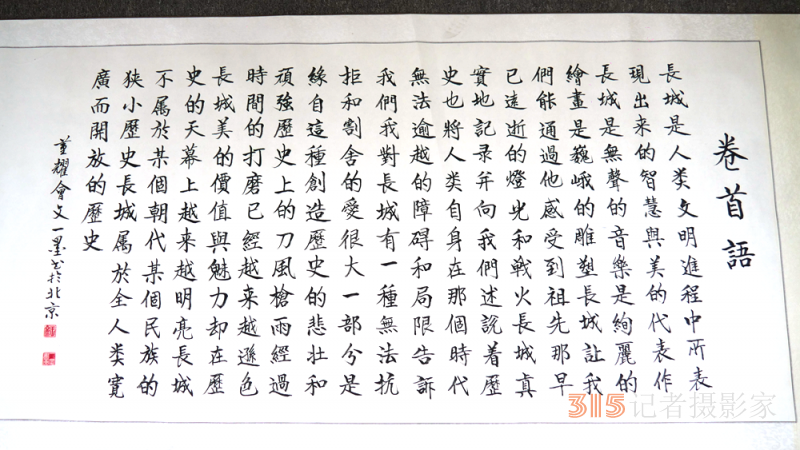 卷首語
長城是人类文明進程中所表
現出来的智慧與美的代表作
長城是無聲的音樂是絢麗的
繪畫是巍峨的雕塑長城让我
們能通過他感受到祖先那早
已遠逝的燈光和戰火長城真
實地記录并向我們述説着歷
史也將人类自身在那個時代
無法逾越的障碍和局限告訴
我們我對長城有一種無法抗
拒和割舍的愛很大一部分是
緣自這種創造歷史的悲壮和
頑強歷史上的刀風槍雨經過
時間的打磨已經越来越遜色
長城美的價值與魅力却在歷
史的天幕上越来越明亮長城
不属於某個朝代某個民族的
狭小歷史長城属於全人类寬
廣而開放的歷史
董耀會文一墨书於北京
315记者摄影家